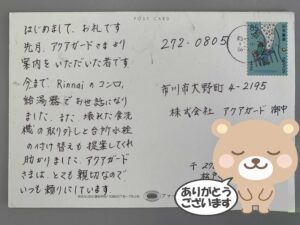 POST CARD
はじめまして、お礼です
先月、アクアガードさまより
案内をいただいた者です
今まで、Rinnaiのコンロ、
給湯器でお世話になり
ました。また、壊れた食洗
機の取り外しと台所水栓
の付け替えも提案してくれ
助かりました。アクアガード
さまは、とても親切なので
いつも頼りにしています
272-0805
市川市大野町4-2195
株式会社 アクアガード御中
〒27
ありがとう
ございます